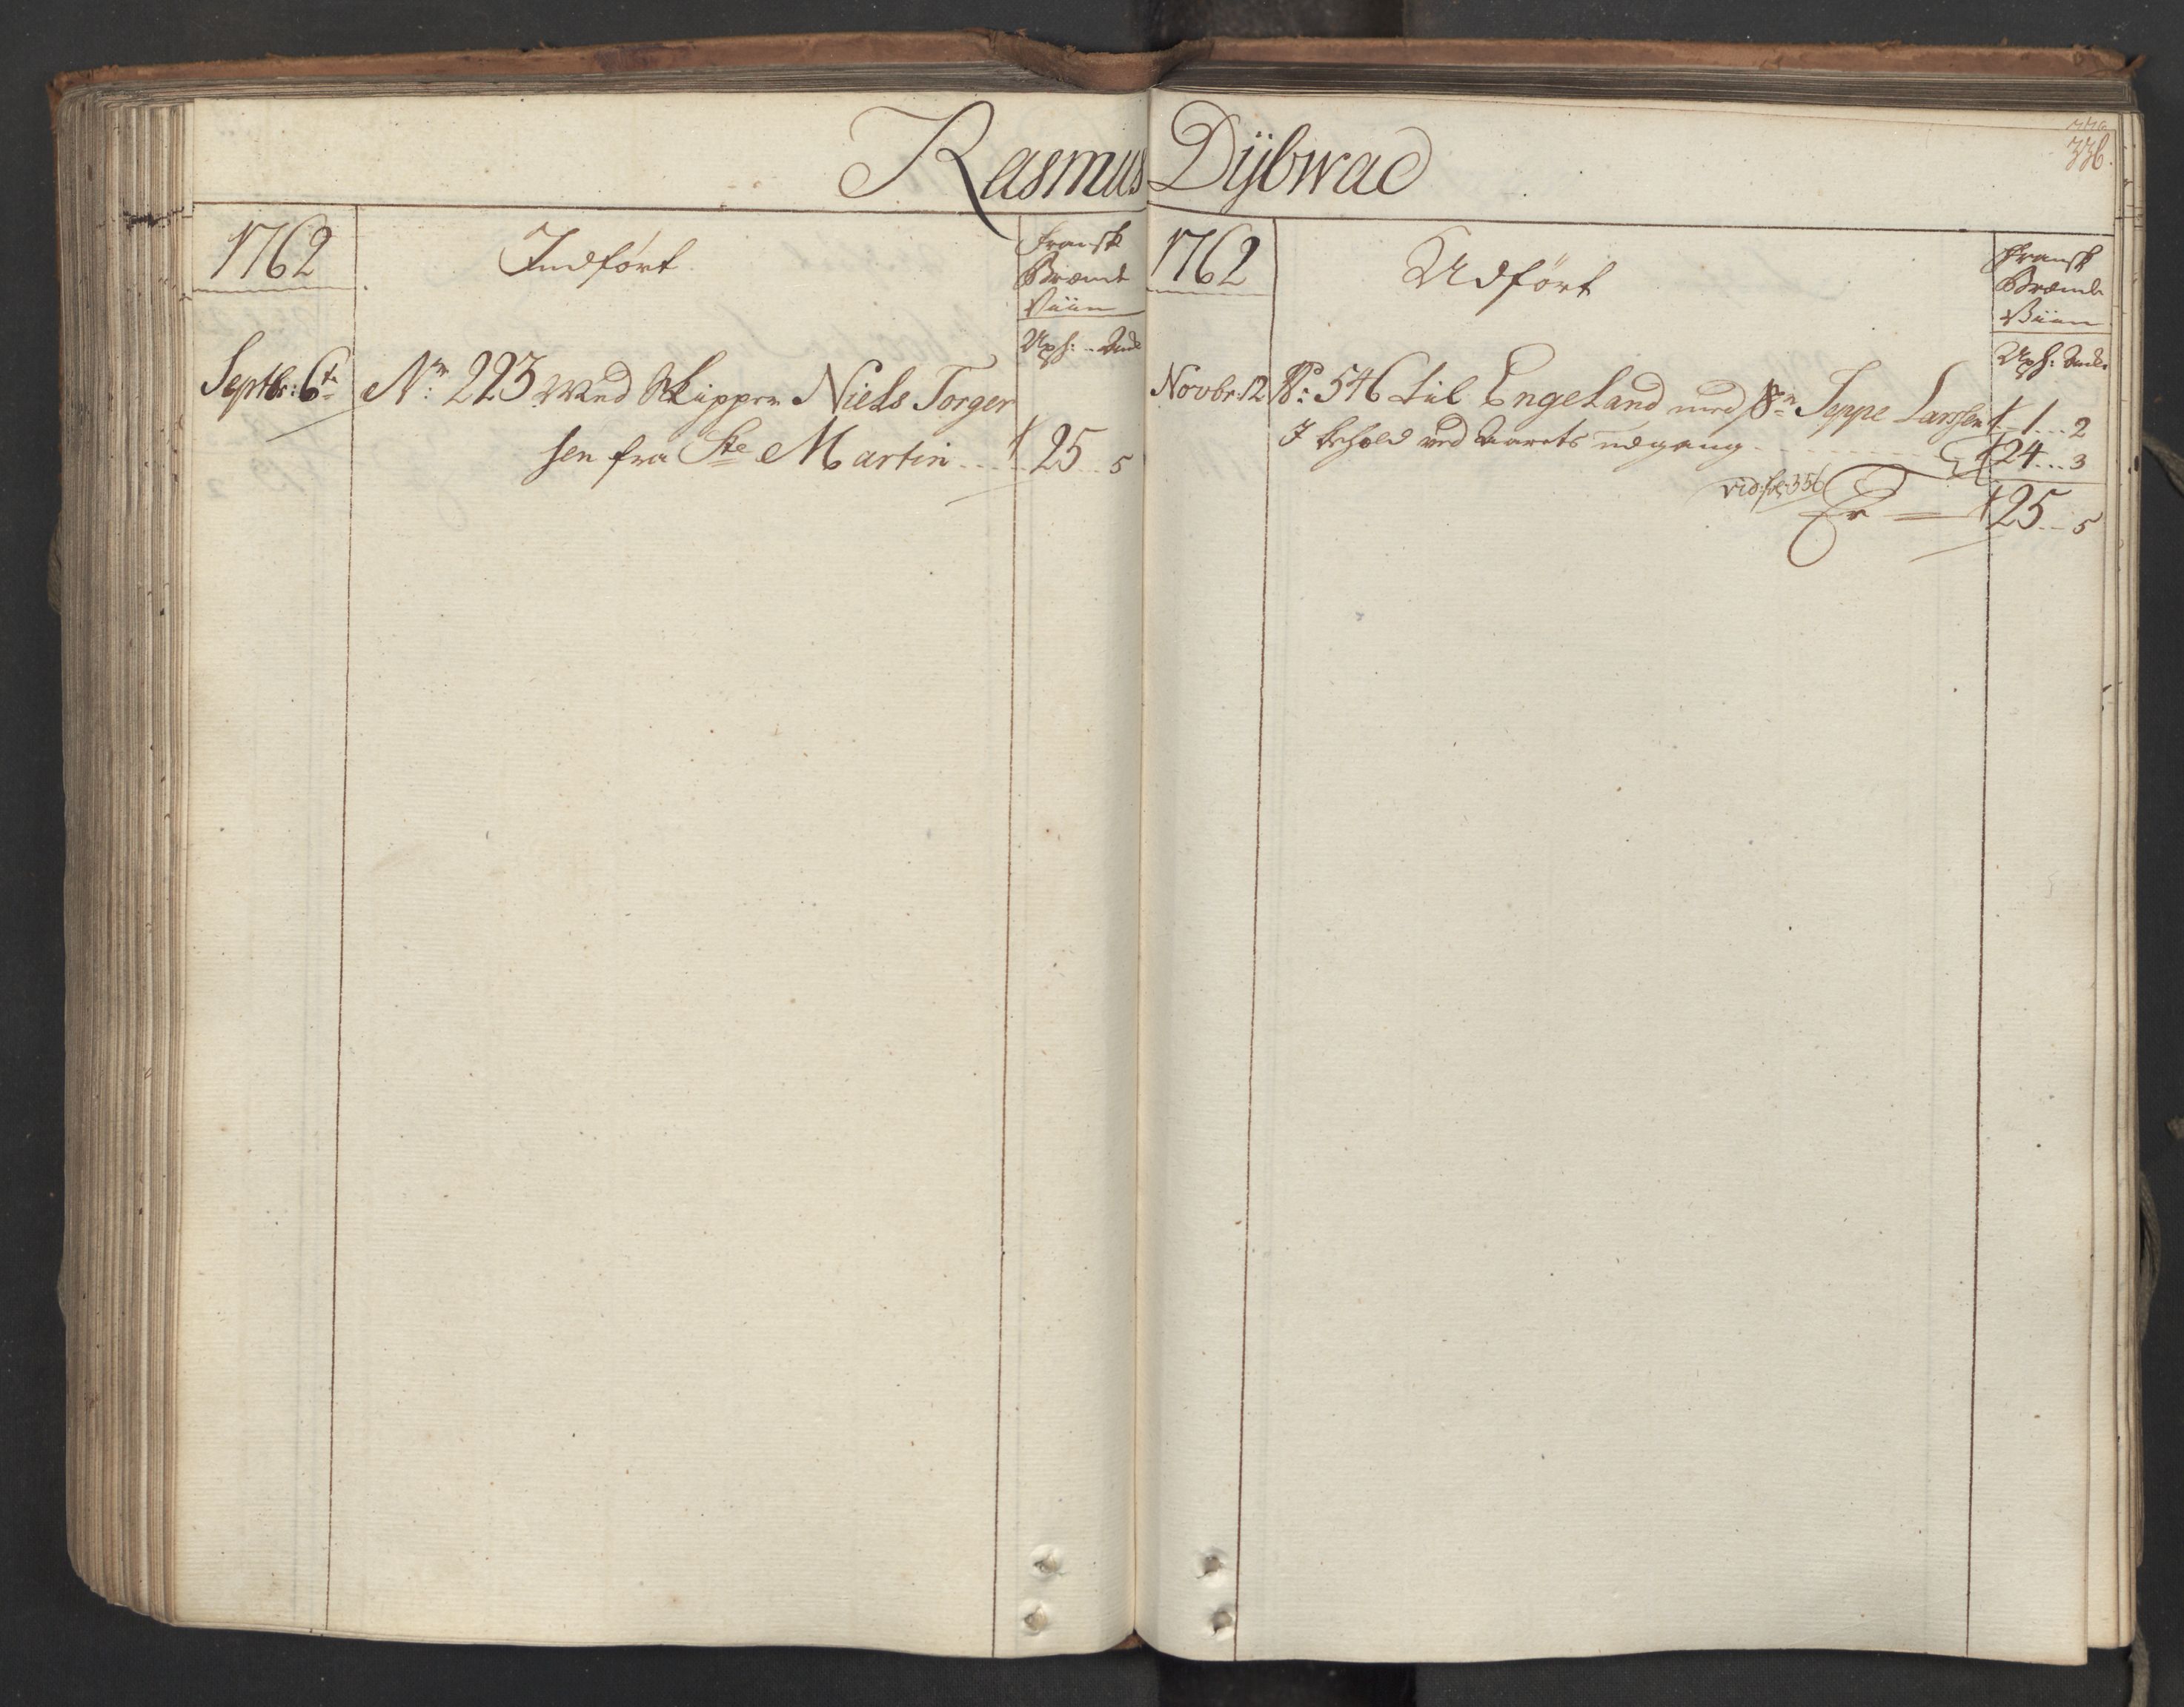 Rasmus Dÿbwad
336.
1762
Indført
Fransk
Brænde
Viin
Septbr: 6te
Nr: 223 Med Skipper Niels Torger
sen fra Ste Martin 25 .. 5
1762
Udført
Fransk
Brænde
Viin
Novbr: 12
No: 546 til Engeland med Sr Jeppe Larssen 1 ... 2
I behold ved Aarets udgang 24 ... 3
vid: fol: 356
Er 25 .. 5